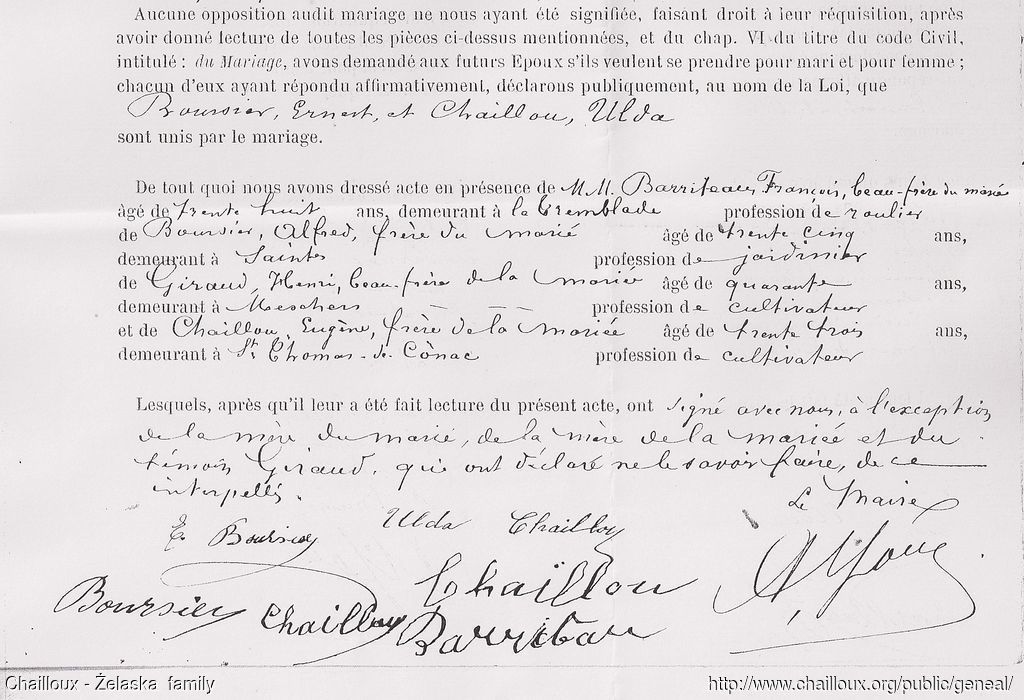 Aucune opposition audit mariage ne nous ayant été signifiée, faisant droit à leur réquisition, après
avoir donné lecture de toutes les pièces ci-dessus mentionnées, et du chap. VI du titre du code Civil,
intitulé : du Mariage, avons demandé aux futurs Epoux s'ils veulent se prendre pour mari et pour femme ;
chacun d'eux ayant répondu affirmativement, déclarons publiquement, au nom de la Loi, que
Boursier, Ernest, et Chaillou, Ulda
sont unis par le mariage.
De tout quoi nous avons dressé acte en présence de M.M. Barriteau, François, beau-frère du marié
âgé de trente huit ans, demeurant à la Tremblade profession de roulier
de Boursier, Alfred, frère du marié âgé de trente cinq ans,
demeurant à Saintes profession de jardinier
de Giraud, Henri, beau-frère de la mariée âgé de quarante ans,
demeurant à Meschers profession de cultivateur
et de Chaillou, Eugène, frère de la mariée âgé de trente trois ans,
demeurant à St Thomas-de-Cônac profession de cultivateur
Lesquels, après qu'il leur a été fait lecture du présent acte, ont signé avec nous, à l'exception
de la mère du marié, de la mère de la mariée et du
témoin Giraud, qui ont déclaré ne le savoir faire, de ce
interpellés.
Le Maire
E. Boursier Ulda Chaillou
Chaillou
Boursier Chaillou Barriteau
Chailloux - Żelaska family http://www.chailloux.org/public/geneal/